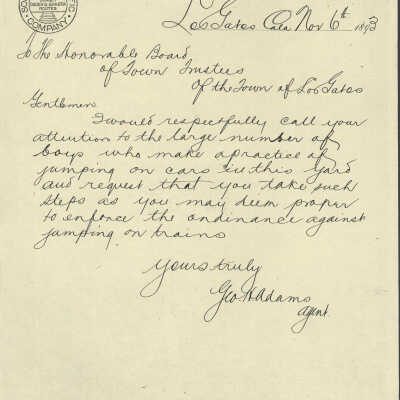 COMPANY
Los Gates Cala Nov 6th 1893
To The Honorable Board
of Town Trustees
Of the Town of Los Gates
Gentlemen
I would respectfully call your
attention to the large number of
boys who make a practice of
jumping on cars in this yard
and request that you take such
steps as you may deem proper
to enforce the ordinance against
jumping on trains
Yours truly
Geo H Adams
Agent